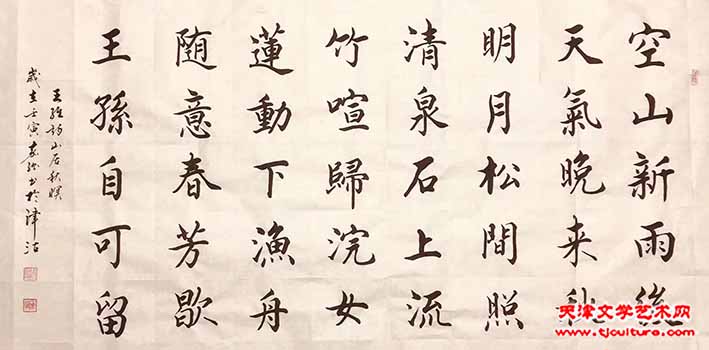 空山新雨後
天氣晚来秋
明月松間照
清泉石上流
竹喧歸浣女
蓮動下漁舟
随意春芳歇
王孫自可留
王維詩山居秋暝
歲在壬寅春 書於津沽
天津文学艺术网
www.tjculture.com